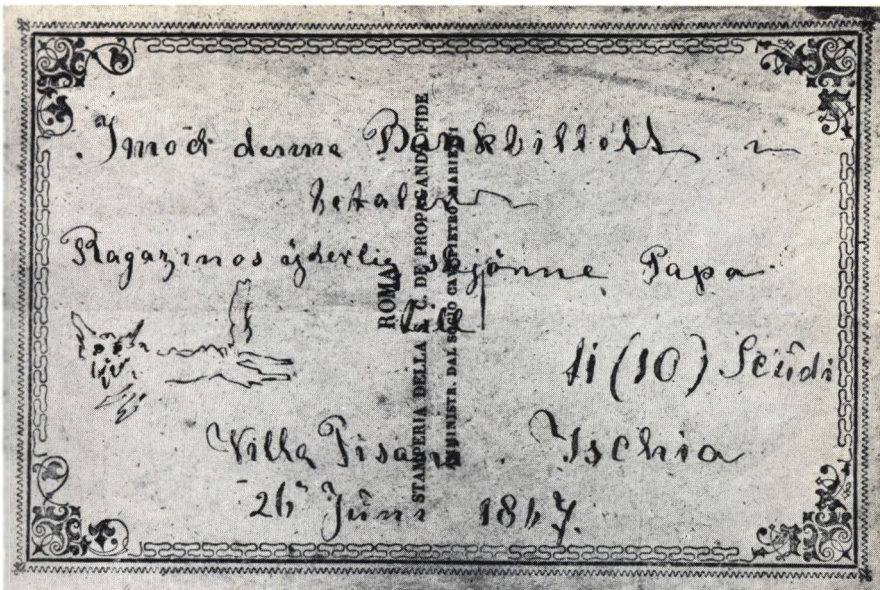 Imod denne Bankbillett
betaler
Ragazinos skjönne Papa
till
ti (10) Scudi
Villa Pisani. Ischia
26 Juni 1867.
ROMA
STAMPERIA DELLA S. C. DE PROPAGANDA FIDE
AMMINISTR. DAL SOCIO CAV. PIETRO MARIETTI